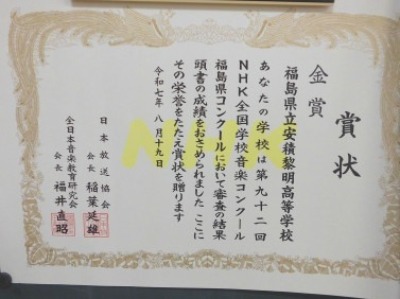 賞状
金賞
福島県立安積黎明高等学校
あなたの学校は第九十二回
NHK全国学校音楽コンクール
福島県コンクールにおいて審査の結果
頭書の成績をおさめられました ここに
その栄誉をたたえ賞状を贈ります
令和七年 八月十九日
日本放送協会
会長 稲葉延雄
全日本音楽教育研究会
会長 福井直昭
NHK